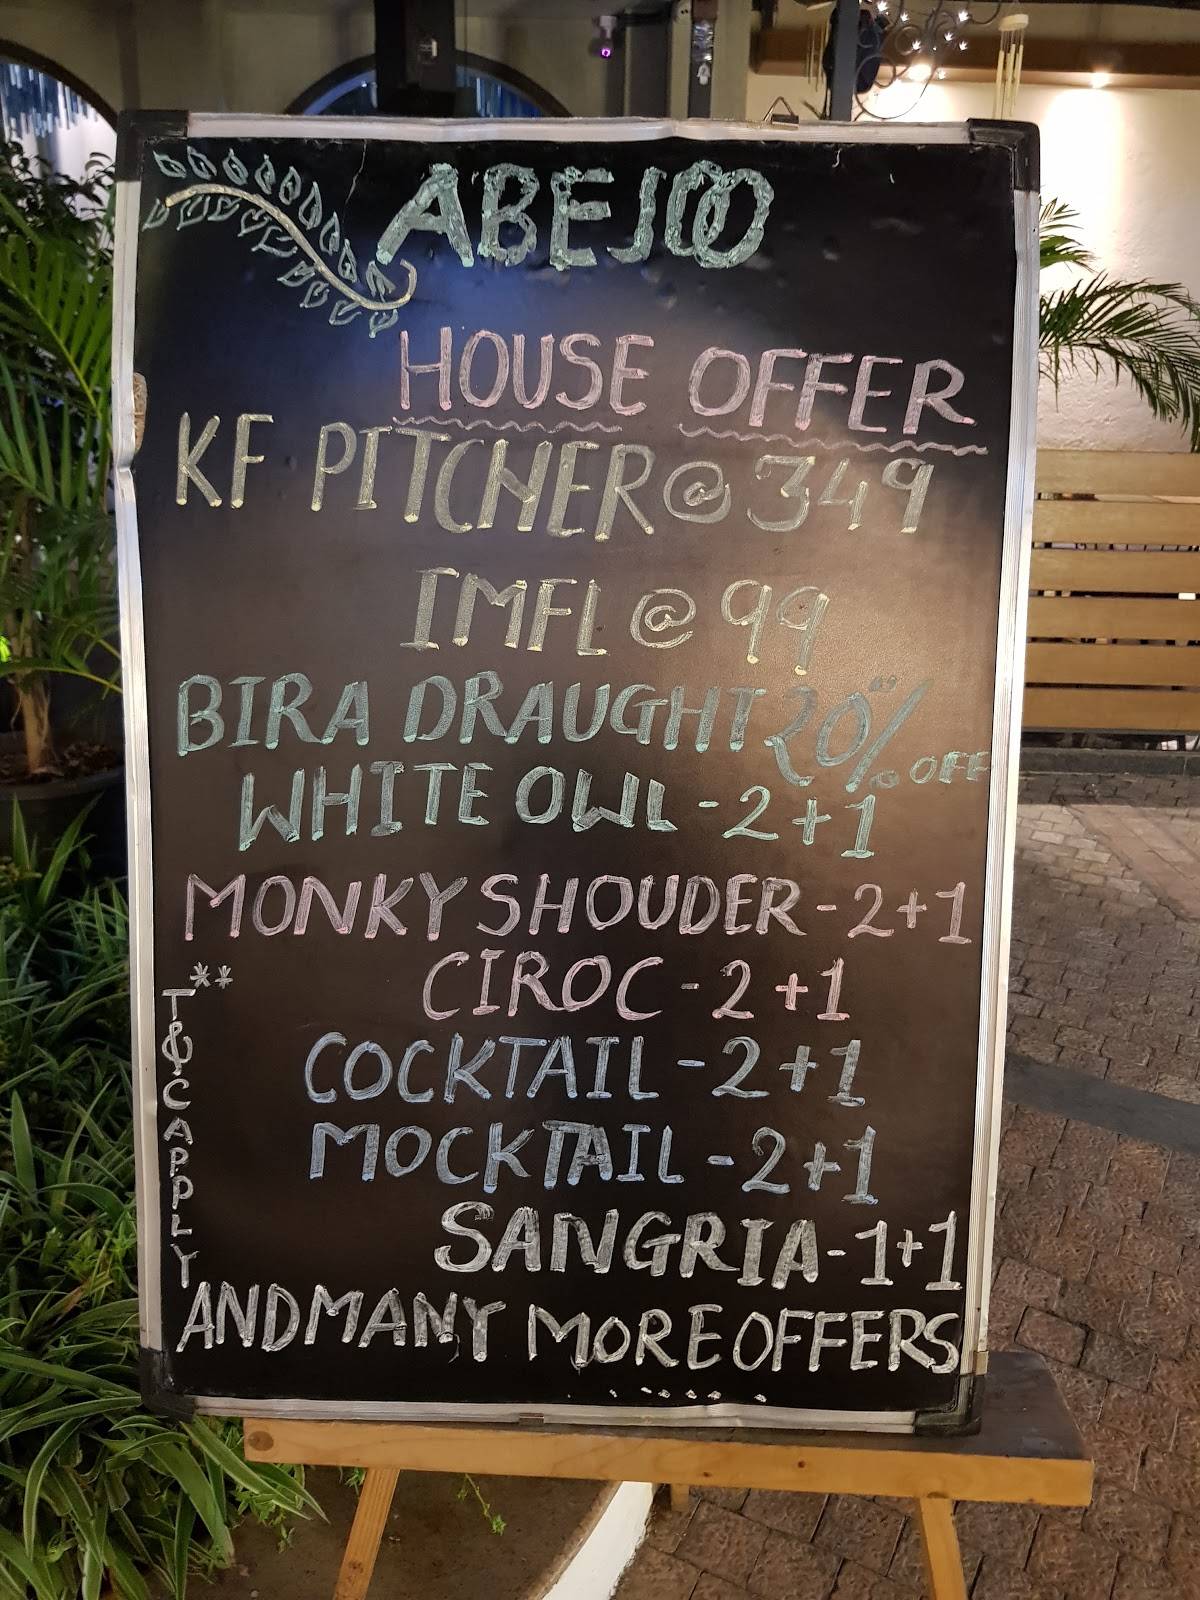 ABEJOO
HOUSE OFFER
KF PITCHER@349
IMFL@99
BIRA DRAUGHT 20% OFF
WHITE OWL-2+1
MONKY SHOUDER-2+1
CIROC-2+1
COCKTAIL-2+1
MOCKTAIL-2+1
SANGRIA-1+1
AND MANY MORE OFFERS
......
**
T&C APPLY